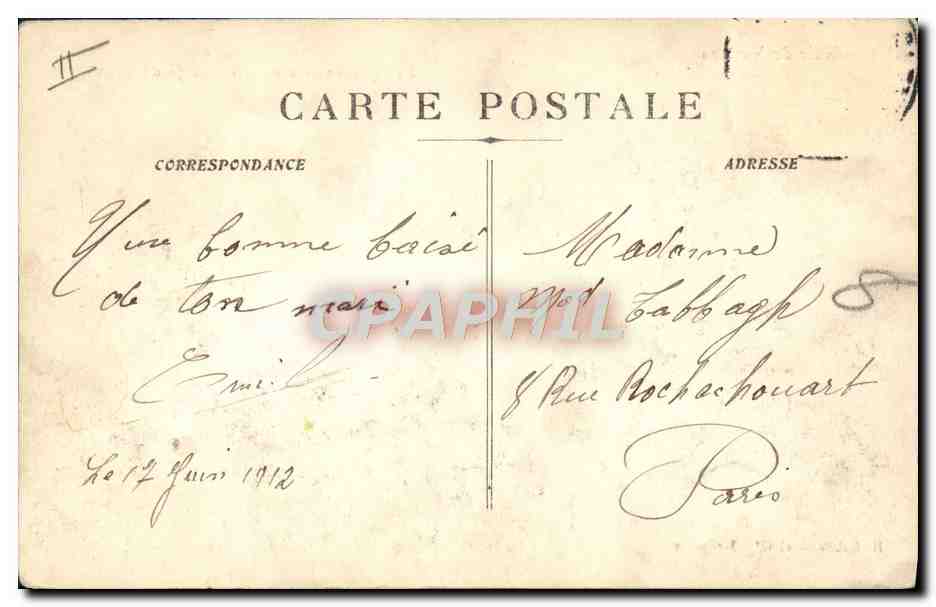 II
CARTE POSTALE
CORRESPONDANCE
ADRESSE
Une bonne baisé
de ton mari
Emil
Le 17 Juin 1912
Madame
Tabbagh
8 Rue Rochechouart
Paris
8
CPAPHIL